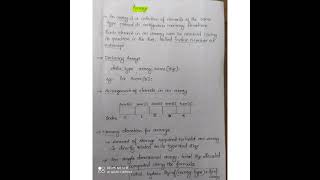 Array
→ An array is a collection of elements of the same
type placed in contiguous memory locations.
Each element in an array can be accessed
its position in the list, called index number or
→ Declaring Arrays
data type array name [size];
eg: int num[5];
→ Arrangement of elements in an array
num[0] num[1] num[2] num[3] num[4]
Index 0 1 2 3 4
→ Memory allocation for arrays
→ amount of storage required to hold an array
is directly related to its type and size.
→ For single dimensional array, total
computed using the formula